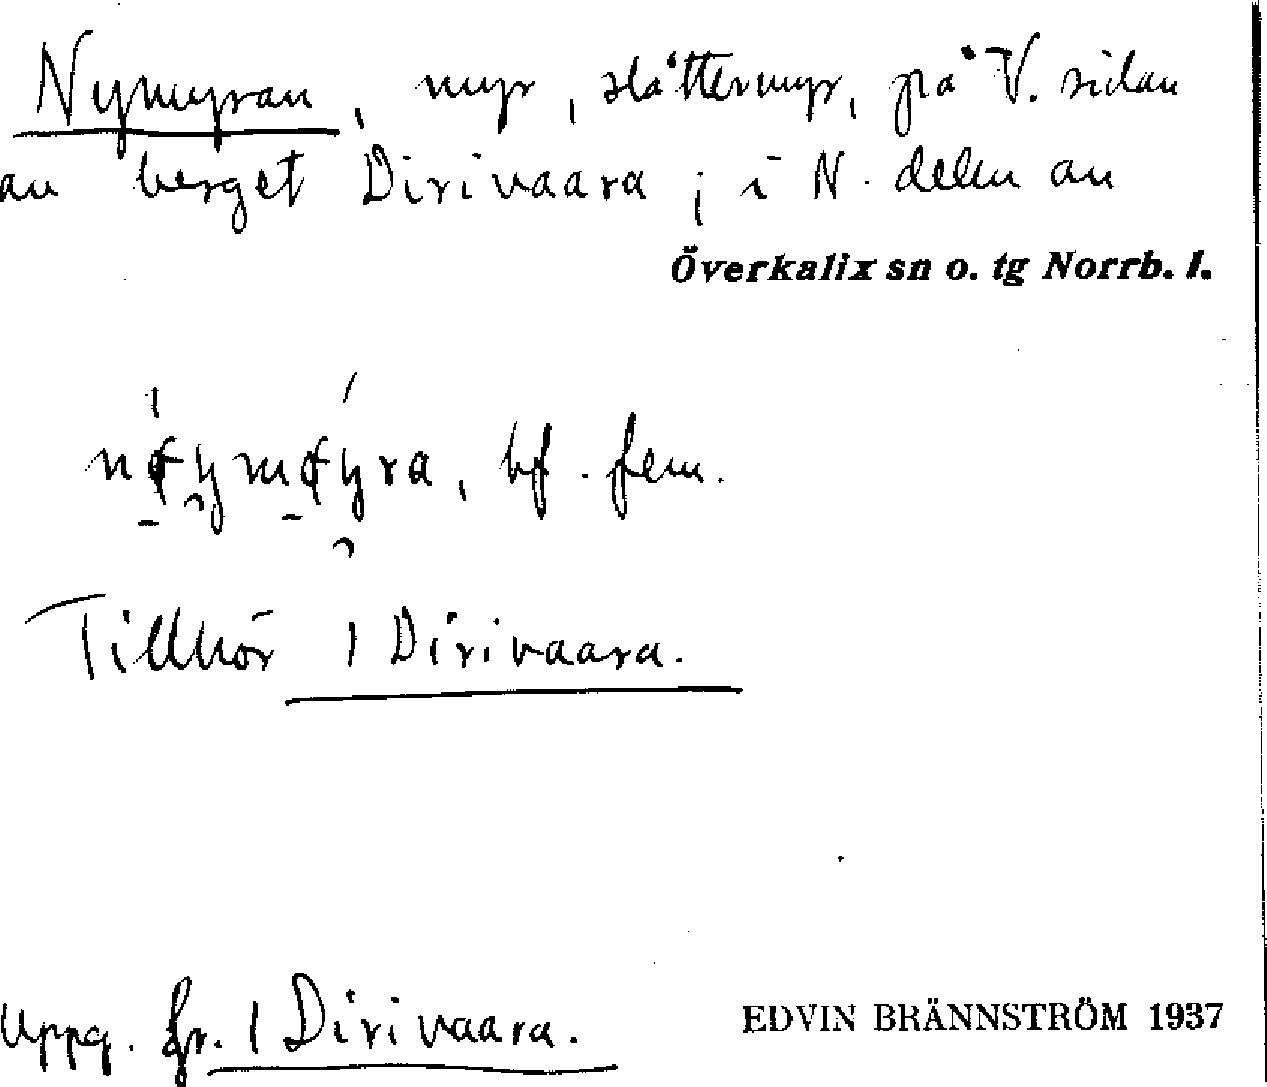 Nymyran, myr, slåttermyr, på V. sidan
av berget Dirivaara; i N. delen av
Överkalix sn o. tg Norrb. l.
bf. fem.
Tillhör 1 Dirivaara.
Uppg. fr. 1 Dirivaara.
EDVIN BRÄNNSTRÖM 1937